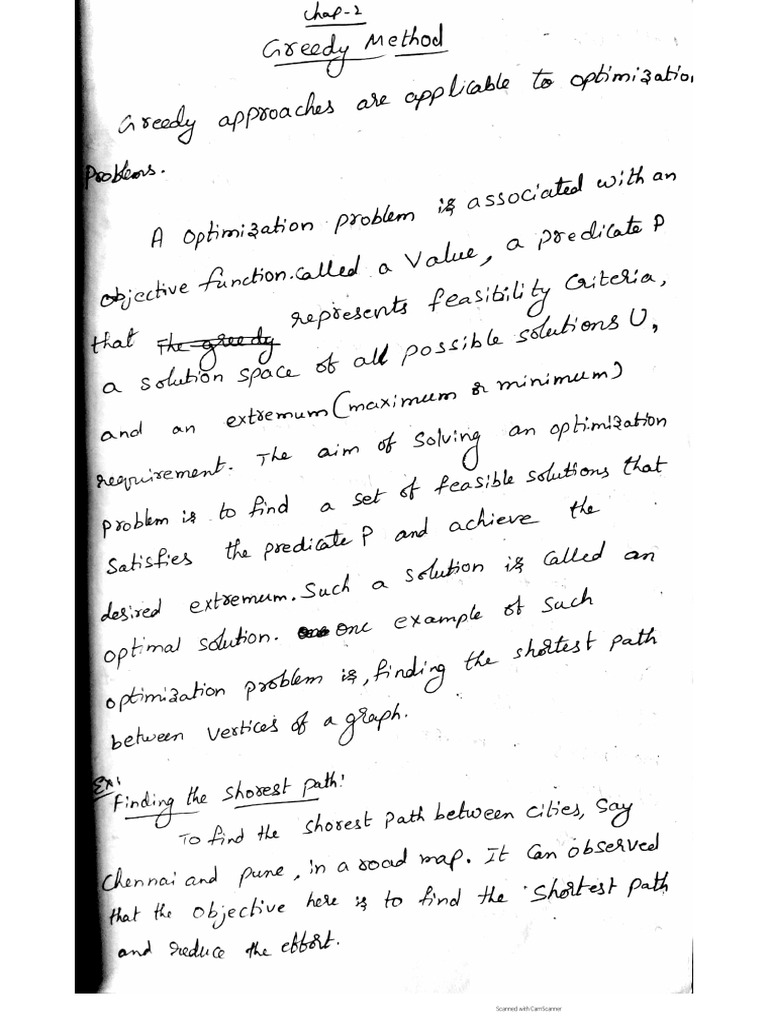 Chap-2
Greedy Method
Greedy approaches are applicable to optimization
Problems.
A optimization problem is associated with an
objective function. called a Value, a predicate P
that The greedy represents feasibility Criteria,
a solution space of all possible solutions U,
and an extremum (maximum or minimum)
requirement. The aim of solving an optimization
problem is to find a set of feasible solutions that
satisfies the predicate P and achieve the
desired extremum. Such a solution is called an
optimal solution. one One example of such
optimization problem is, finding the shortest path
between vertices of a graph.
Ex:
Finding the shorest path:
To find the shorest path between cities, say
Chennai and pune, in a road map. It can observed
that the objective here is to find the shortest path
and reduce the effort.
Scanned with CamScanner